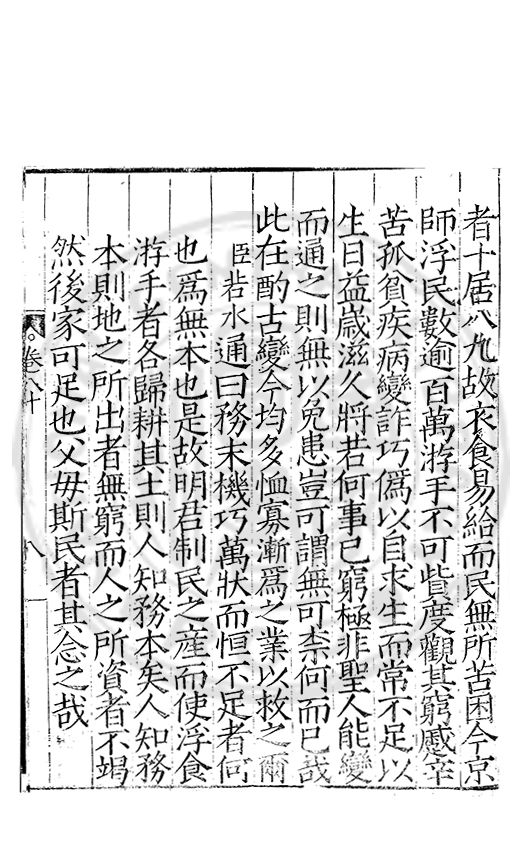 者十居八九故衣食易給而民無所苦困今京
師浮民數逾百萬游手不可貲度觀其窮蹙辛
苦孤貧疾病變詐巧僞以自求生而常不足以
生日益歲滋久將若何事已窮極非聖人能變
而通之則無以免患豈可謂無可柰何而已哉
此在酌古變今均多恤寡漸爲之業以救之爾
臣若水通曰務末機巧萬狀而恒不足者何
也爲無本也是故明君制民之産而使浮食
游手者各歸耕其土則人知務本矣人知務
本則地之所出者無窮而人之所資者不竭
然後家可足也父毋斯民者其念之哉
卷八十
八